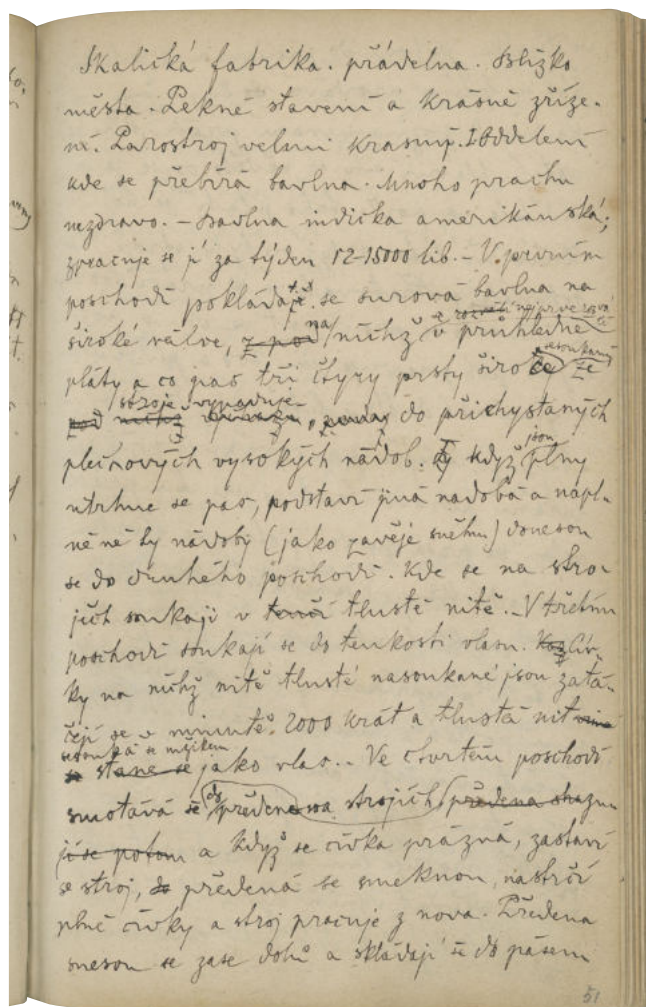 Skalická fabrika. přádelna. Blízko
města. Pekné stavení a krásně zříze-
ní. Parostroj velmi krasný. I Oddelení
kde se přebírá bavlna. Mnoho prachu
nezdravo. – Bavlna indicka amerikánská;
zpracuje se jí za týden 12-15000 lib. – V prvním
poschodí pokládá se surová bavlna na
široké válce, z pod na nichž v průhledné
pláty a co pas tři čtyry prsty široký ze
stroje vypaduje do přichystaných
plechových vysokých nádob. když jsou plny
utrhne se pas, podstaví jiná nadoba a napl-
něné ty nádoby (jako závěje sněhu) donesou
se do druhého poschodí. Kde se na stro-
jich soukají v tenčí tlusté nitě. – V třetím
poschodí soukají se do tenkosti vlasu. Cív-
ky na nichž nitě tlusté nasoukané jsou zatá-
čejí se v minutě 2000 krát a tlustá nit
sesouká se mžikem
stane se jako vlas. – Ve čtvrtém poschodí
smotává se do předena na strojích předena
jí se potom a když se cívka prázná, zastaví
se stroj, předená se smeknou, nastrčí
plné cívky a stroj pracuje z nova. Předena
snesou se zase dolů a skládají se do pásem
51